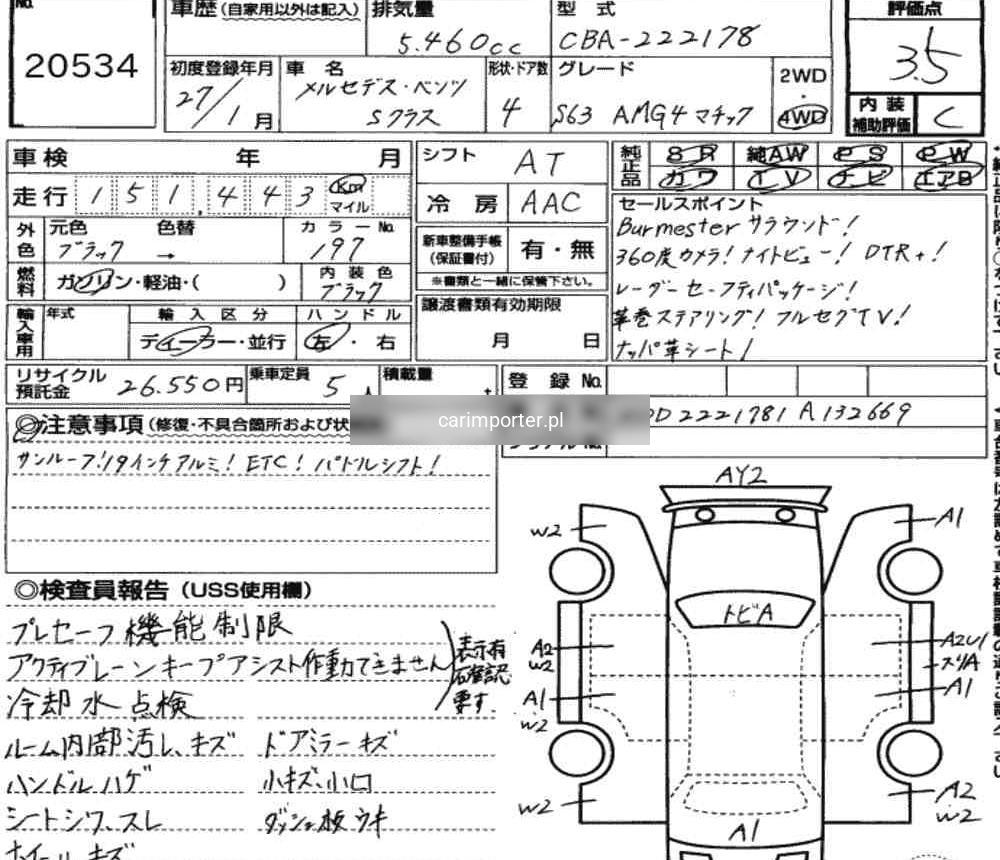 No.
20534
車歴(自家用以外は記入)
排気量
5.460cc
型式
CBA-222178
評価点
3.5
初度登録年月
27/1月
車名
メルセデス・ベンツ
Sクラス
形状・ドア数
4
グレード
S63 AMG4マチック
2WD
・
4WD
内装
補助評価
C
車検 年 月
走行 151,443 Km
マイル
シフト AT
冷房 AAC
純正品
SR 純AW PS PW
カワ TV ナビ エアB
外色
元色 色替
ブラック →
カラーNo.
197
燃料
ガソリン・軽油・( )
内装色
ブラック
新車整備手帳
(保証書付)
有・無
※書類と一緒に保管下さい。
セールスポイント
Burmesterサラウンド!
360度カメラ!ナイトビュー! DTR+!
レーダーセーフティパッケージ!
革巻ステアリング!フルセグTV!
ナッパ革シート!
輸入車用
年式
輸入区分
ディーラー・並行
ハンドル
左・右
譲渡書類有効期限
月 日
リサイクル
預託金
26.550円
乗車定員 5人
積載量 t
登録No.
D2221781A132669
carimporter.pl
◎注意事項(修復・不具合箇所および状
サンルーフ!19インチアルミ! ETC! パドルシフト!
◎検査員報告(USS使用欄)
プレセーフ機能制限
アクティブレーンキープアシスト作動できません
表示有
確認
要す.
冷却水点検
ルーム内部汚し、キズ ドアミラーキズ
ハンドルハゲ 小キズ、小凹
シートシワ、スレ ダッシュ板ウキ
ホイールキズ
AY2
W2
A1
トビA
A2
W2
A1
W2
W2
A1
A1
A2
W2